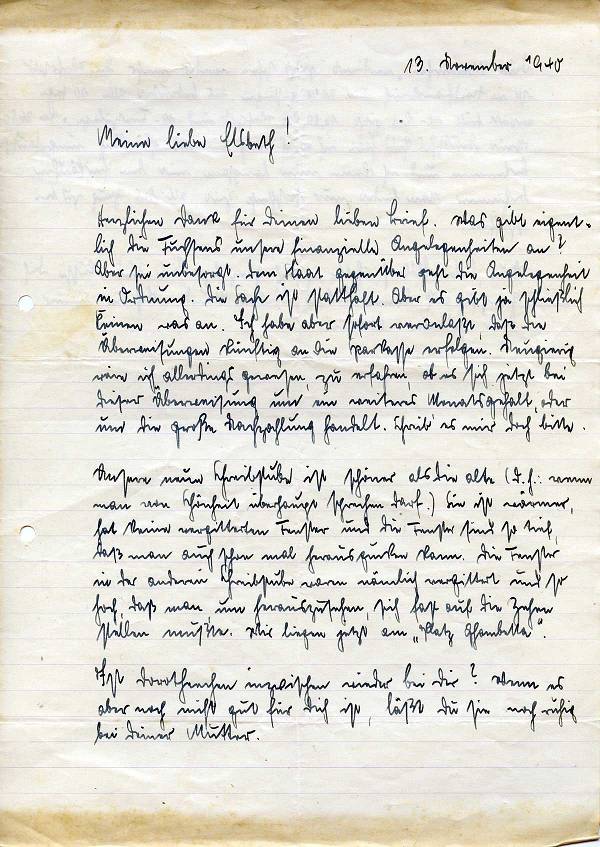 13. November 1940
Meine liebe Elsbeth!
Herzlichen Dank für Deinen lieben Brief. Was gibt eigent-
lich die Fürstens unsere finanzielle Angelegenheiten an?
Aber sei unbesorgt. Dem Staat gegenüber geht die Angelegenheit
in Ordnung. Die Sache ist statthaft. Aber es gibt ja schließlich
keinen was an. Ich habe aber sofort veranlaßt, daß die
Überweisungen künftig an die Sparkasse erfolgen. Neugierig
wäre ich allerdings gewesen, zu erfahren, ob es sich jetzt bei
dieser Überweisung um ein weiteres Monatsgehalt, oder
um die große Nachzahlung handelt. Schreib' es mir doch bitte.
Unsere neue Schreibstube ist schöner als die alte (d.h.: wenn
man von Schönheit überhaupt sprechen darf.) Sie ist wärmer,
hat keine vergitterten Fenster und die Fenster sind so tief,
daß man auch schon mal herausgucken kann. Die Fenster
in der anderen Schreibstube waren nämlich vergittert und so
hoch, daß man um herauszusehen, sich fast auf die Zehen
stellen mußte. Wir liegen jetzt am „Platz Ghambetta".
Ist Dorotheechen inzwischen wieder bei Dir? Wenn es
aber noch nicht gut für Dich ist, läßt Du sie noch ruhig
bei Deiner Mutter.